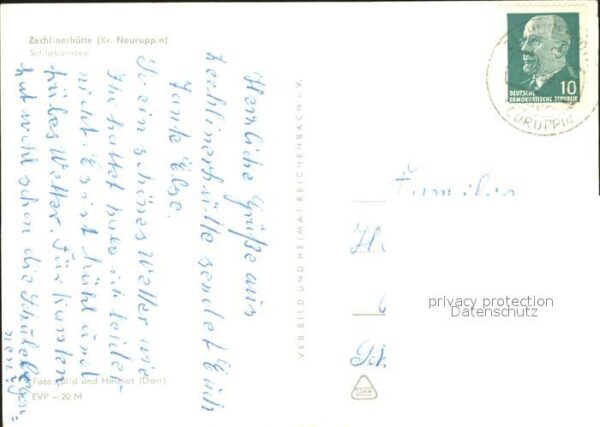 Zechlinerhütte (Kr. Neuruppin)
Schlabornsee
Herrliche Grüße aus
Zechlinerhütte sendet Euch
Tante Else.
So ein schönes Wetter wie
Ihr hattet haben wir leider
nicht. Es ist kühl und
trübes Wetter. Für
hat wohl schon die Schule
Foto: Bild und Heimat (Dorr)
EVP –,20 M
VEB BILD UND HEIMAT REICHENBACH i. V.
10
DEUTSCHE
DEMOKRATISCHE REPUBLIK
EURUPPIN
Familie
privacy protection
Datenschutz